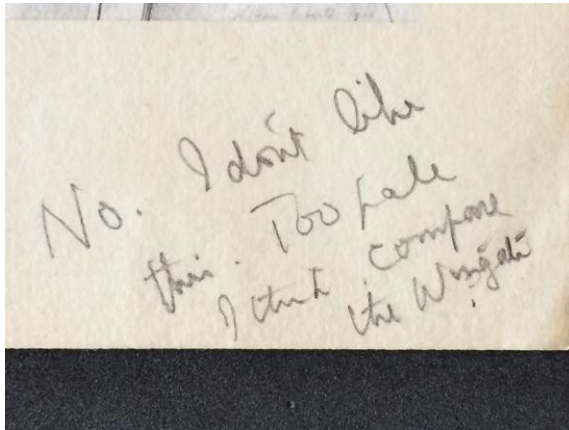 No. I don't like
this. Too pale
I think compare
the Wingate